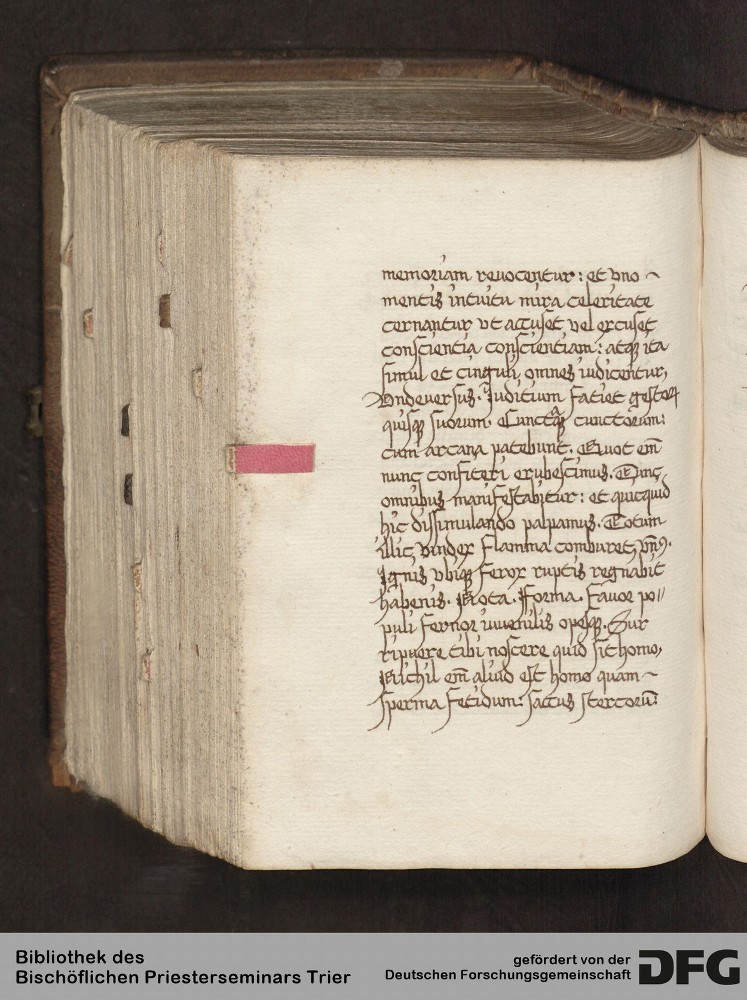 memoriam reuocentur: et vno
mentis intuitu mira celeritate
cernantur vt accuset vel excuset
conscientia conscientiam: atq̃ ita
simul et cinguli omnes iudicentur,
Vndeuersus. Iudicium faciet gestoꝝ
quisq̃ suorum. Cunctaq̃ cunctorum:
cum arcana patebunt. Quot em̃
nunc confiteri erubescimus. Tunc
omnibus manifestabitur: et quicquid
hic dissimulando palpamus. Totum
illic vindex flamma comburet, vn̄9.
Ignis vbiq̃ ferox ruptis regnabit
habenis. Nota. Forma. Fauor po//
puli feruor iuuenilis opesq̃. Sur
ripuere tibi noscere quid sit homo,
Nichil em̃ aliud est homo quam
sperma fetidum: saccus stercorū:
Bibliothek des
Bischöflichen Priesterseminars Trier
gefördert von der
Deutschen Forschungsgemeinschaft
DFG